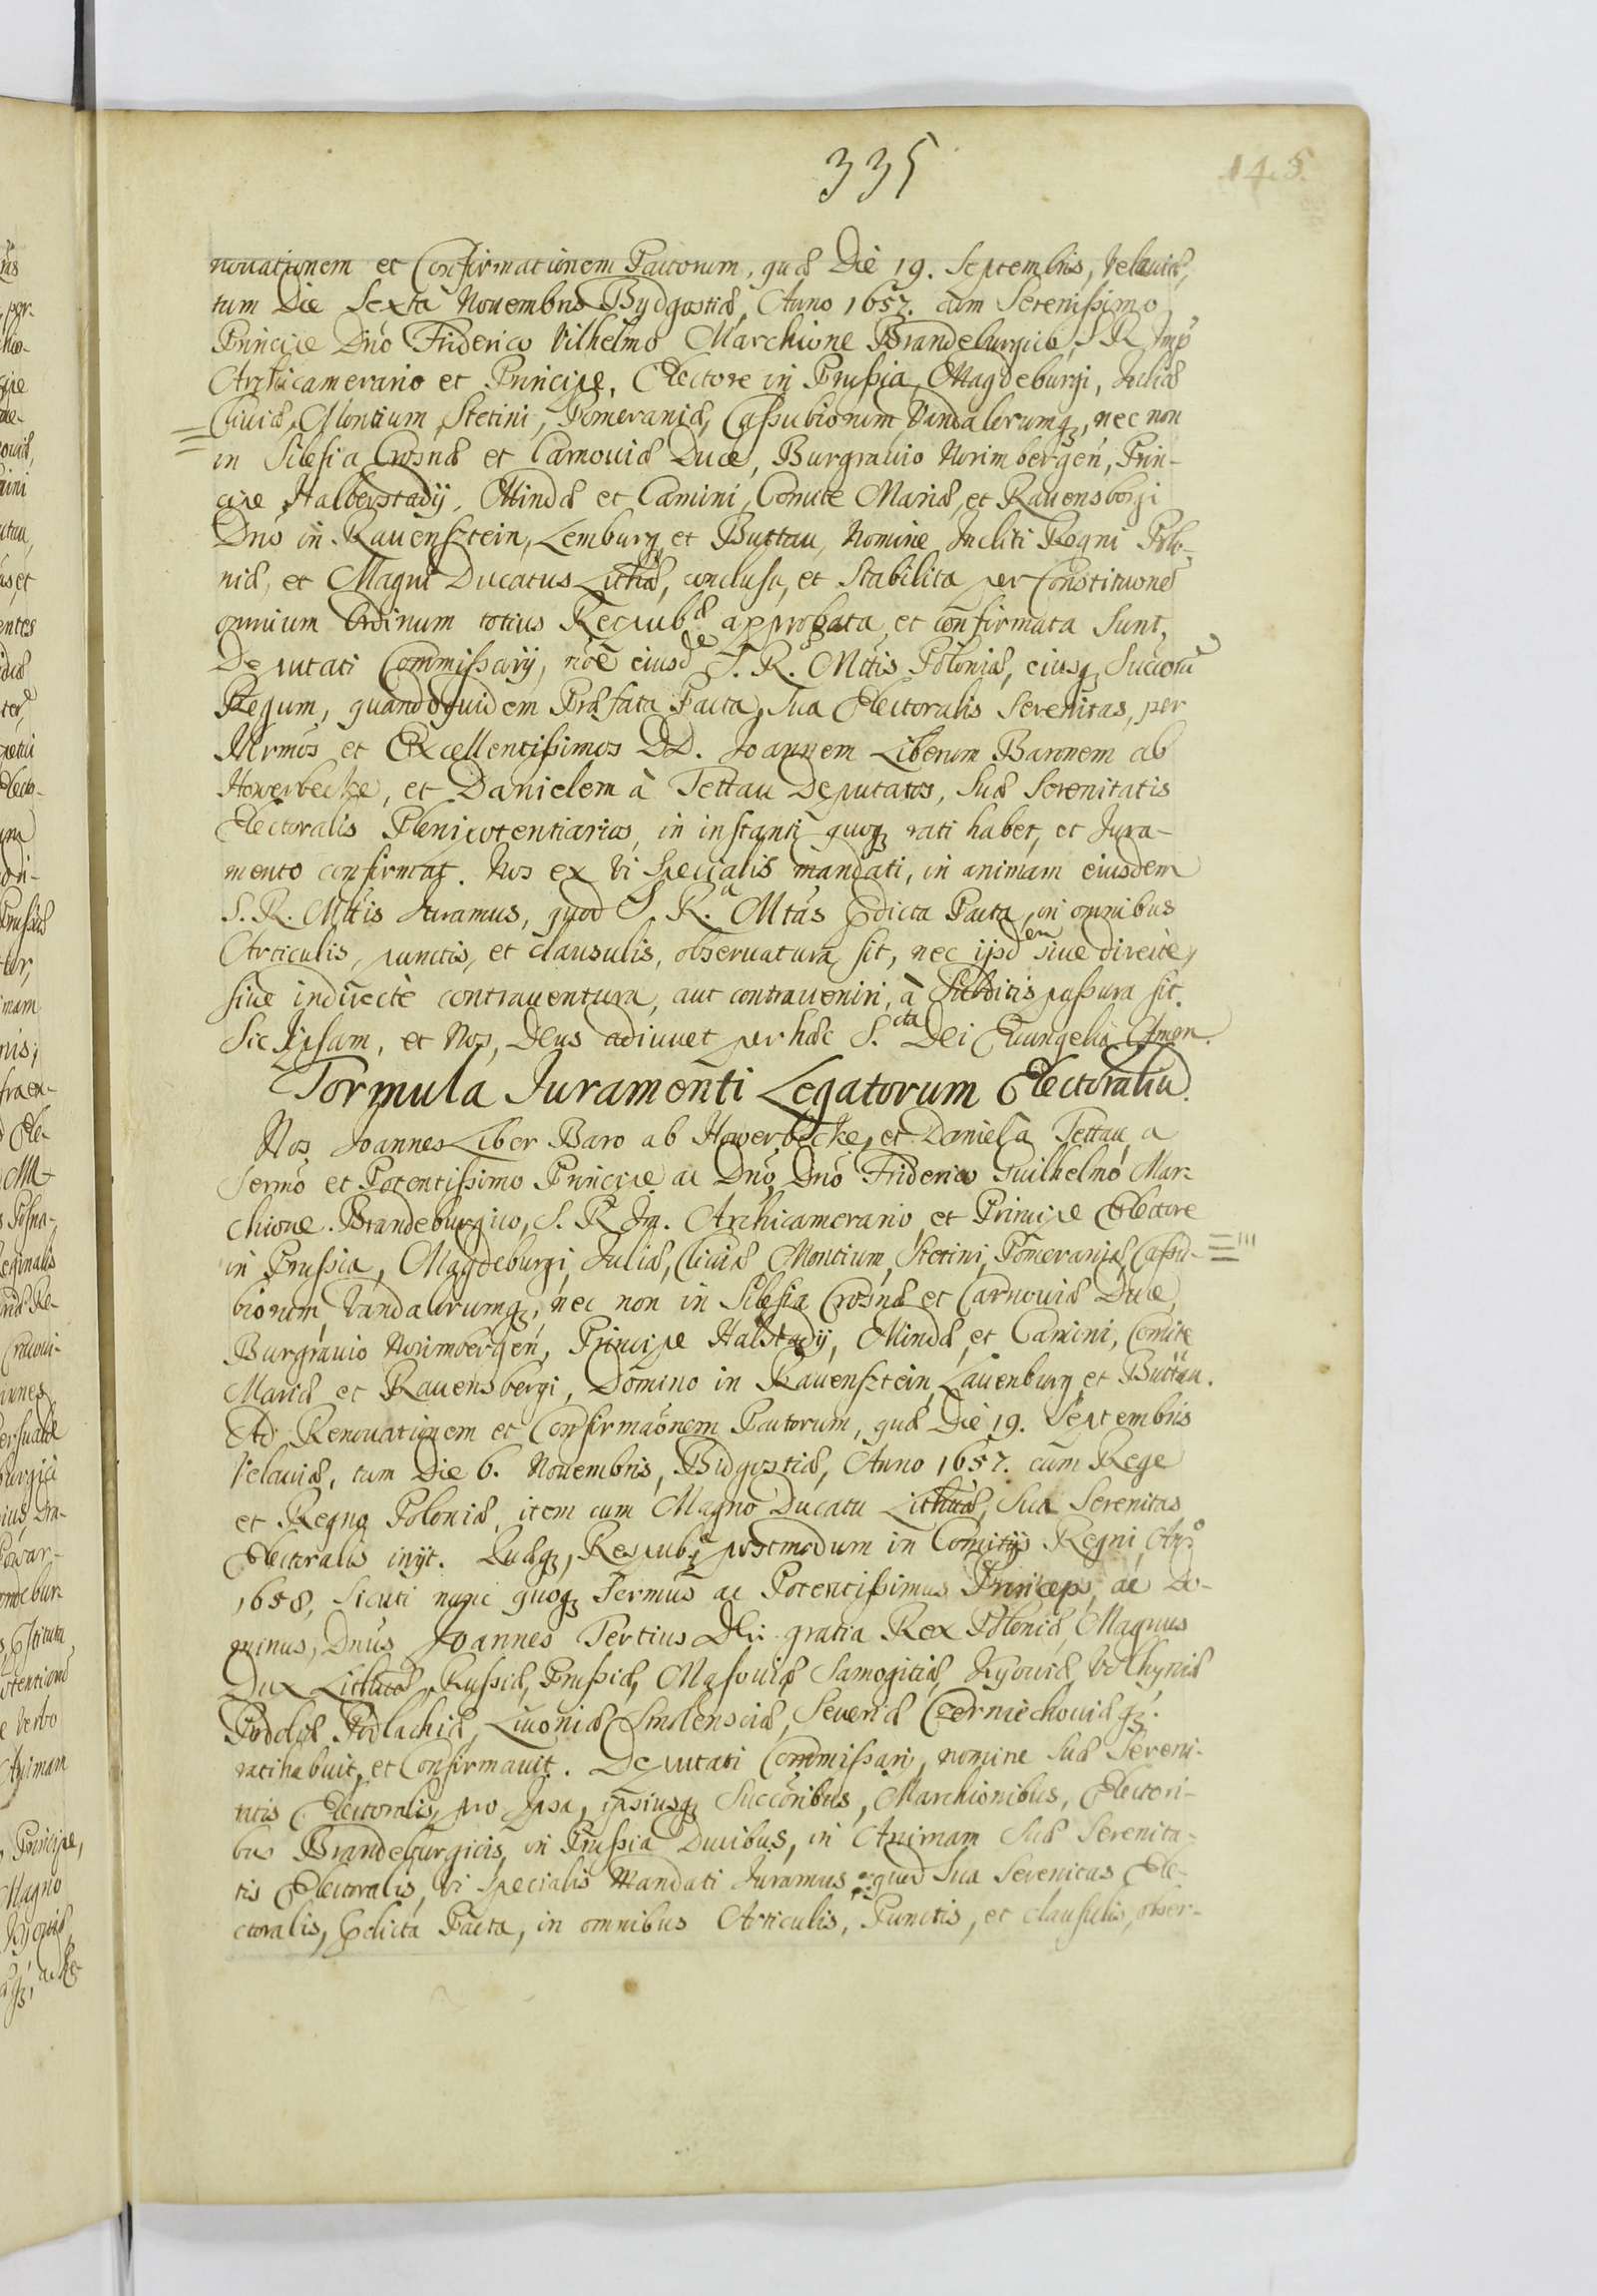 335
145.
nouationem et Confirmationem Pactorum, quæ Die 19. Septembris, Velauiæ,
tum Die Sexta Nouembris Bydgostiæ, Anno 1657. cum Serenissimo
Principe Dno Friderico Vilhelmo Marchione Brandeburgico, S. R. Imp
Archicamerario et Principe, Electore in Prussia, Magdeburgi, Juliæ
Cliuiæ, Montium, Stetini, Pomeraniæ, Cassubiorum Vandalorumq, nec non
in Silesia Crosnæ et Carnouiæ Duce, Burgrauio Norimbergen, Prin-
cipe Halberstadij, Mindæ et Camini, Comite Mariæ, et Rauensbergi
Dno in Rauensztein, Lemburg et Buttau, Nomine Incliti Regni Polo-
niæ, et Magni Ducatus Lithæ, conclusa, et Stabilita per Constitutiones
omnium Ordinum totius Reipubcæ approbata et confirmata Sunt,
Deputati Commissarij, noe eiusde S. R. Mttis Poloniæ, eiusq Succoru
Regum, quandoquidem Præfata Pacta, Sua Electoralis Serenitas, per
Illrmos et Excellentissimos DD. Joannem Liberum Baronem ab
Howerbecke, et Danielem à Tettau Deputatos, Suæ Serenitatis
Electoralis Plenipotentiarios, in instanti quoq rati habet, et Jura-
mento confirmat. Nos ex Vi Specialis mandati, in animam eiusdem
S. R. Mttis Juramus, quod S. R.a Mtas Prdicta Pacta, in omnibus
Articulis, punctis, et clausulis, obseruatura sit, nec ijsdem siue directe,
siue indirectè contrauentura, aut contraueniri, à Subditis passura sit.
Sic Ipsam, et Nos, Deus adiuuet per hæc S.cta Dei Euangelia Amen.
Formula Juramenti Legatorum Electoraliu.
Nos Joannes Liber Baro ab Howerbecke, et Daniel à Tettau, a
Sermo et Potentissimo Principe ac Dno, Dno Friderico Guilhelmo Mar-
chione Brandeburgico, S. R. Im. Archicamerario et Principe Electore
in Prussia, Magdeburgi, Juliæ, Cliuiæ Montium, Stetini, Pomeraniæ, Cassu-
biorum Vandalorumq, nec non in Silesia Crosnæ et Carnouiæ Duce,
Burgrauio Norimbergen, Principe Halstadij, Mindæ, et Camini, Comite
Mariæ et Rauensbergi, Domino in Rauensztein, Lauenburg et Buttau.
Ad Renouationem et Confirmaonem Pactorum, quæ Die 19. Septembris
Velauiæ, tum Die 6. Nouembris, Bidgostiæ, Anno 1657. cum Rege
et Regno Poloniæ, item cum Magno Ducatu Lithuæ, Sua Serenitas
Electoralis inijt. Quæq, Respubca postmodum in Comitijs Regni, Ano
1658, Sicuti nunc quoq Sermus ac Potentissimus Princeps, ac Do-
minus, Dnus Joannes Tertius Dei gratia Rex Poloniæ, Magnus
Dux Lithuæ, Russiæ, Prussiæ, Masouiæ Samogitiæ, Kyouiæ Volhyniæ
Podoliæ Podlachiæ, Liuoniæ Smolensciæ, Seueriæ Czerniechouiæq.
ratihabuit, et Confirmauit. Deputati Commissarij, nomine Suæ Sereni-
tatis Electoralis, pro Ipsa, ipsiusq Succoribus, Marchionibus, Electori-
bus Brandeburgicis, in Prussia Ducibus, in Animam Suæ Serenita-
tis Electoralis, Vi Specialis Mandati Juramus quod Sua Serenitas Ele-
ctoralis, Prdicta Pacta, in omnibus Articulis, Punctis, et clausulis, obser-